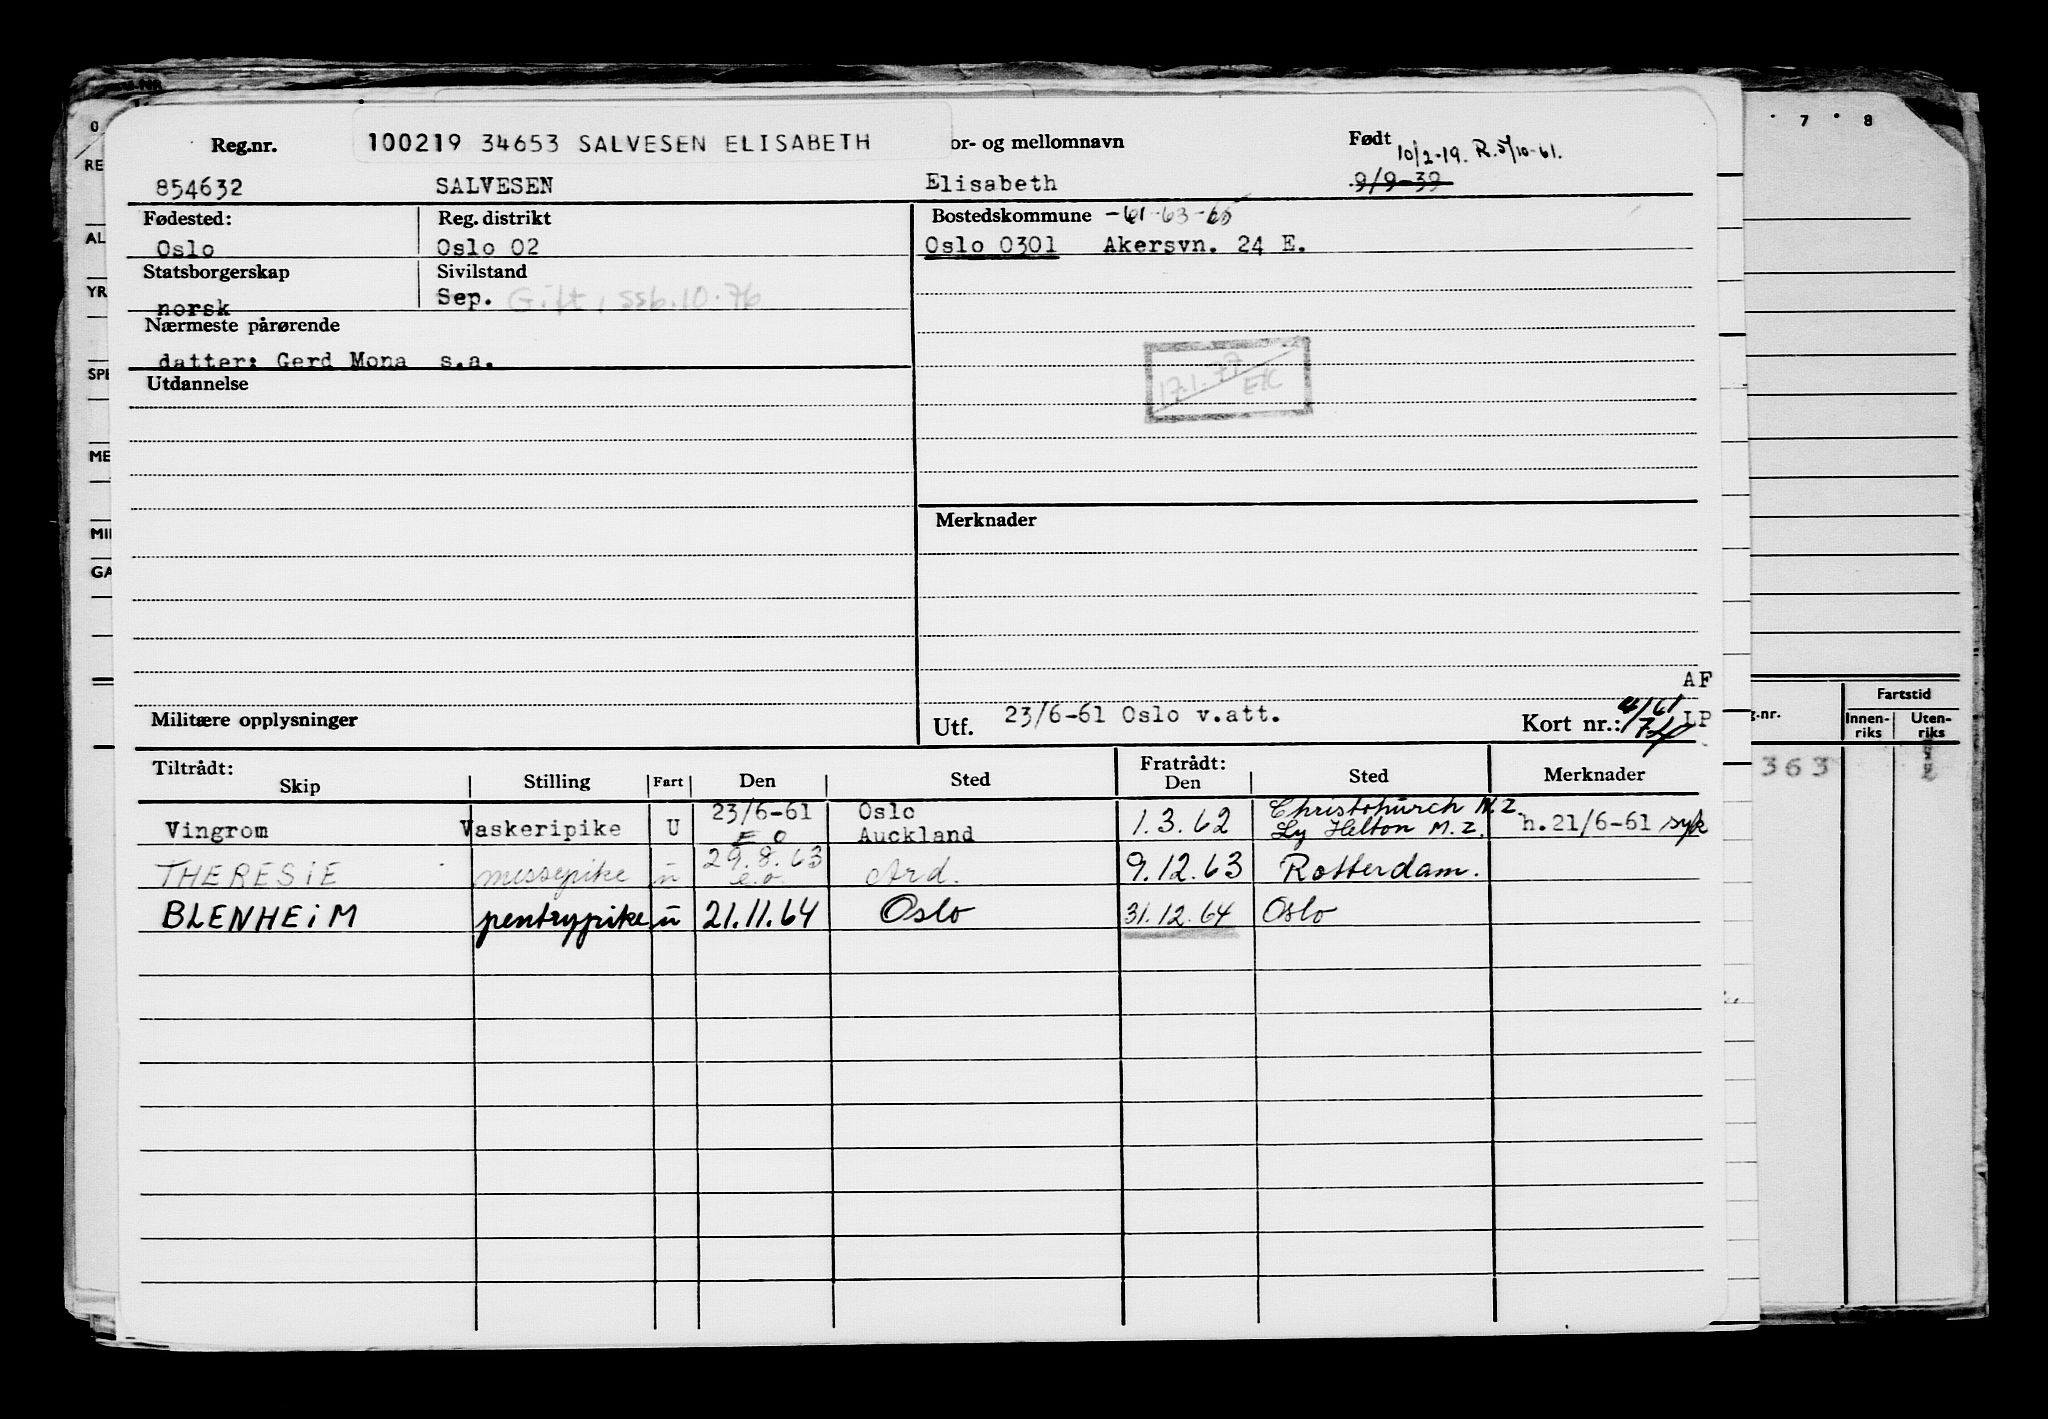 Reg.nr. 100219 34653 SALVESEN ELISABETH or- og mellomnavn Født 10/2-19. R.5/10-61.
854632 SALVESEN Elisabeth 9/9-39
Fødested: Reg. distrikt Bostedskommune -61-63-65
Oslo Oslo 02 Oslo 0301 Akersvn. 24 E.
Statsborgerskap Sivilstand
norsk Sep. Gift, ssb.10.76
Nærmeste pårørende
datter: Gerd Mona s.a.
17.1.77
EK
Utdannelse
Merknader
AF
Militære opplysninger Utf. 23/6-61 Oslo v.att. Kort nr.: 4/61 LP
Tiltrådt: Fratrådt:
Skip Stilling Fart Den Sted Den Sted Merknader
23/6-61 Oslo Christchurch N.Z.
Vingrom Vaskeripike U E O Auckland 1.3.62 Ly Helton M.Z. h.21/6-61 syk
THERESIE messepike u 29.8.63 e.o. Ard. 9.12.63 Rotterdam.
BLENHEiM pentrypike u 21.11.64 Oslo 31.12.64 Oslo
0 7 8
RE
AL
YR
SPE
ME
MII
GA
g.nr. Fartstid
Innen-
riks
Uten-
riks
363